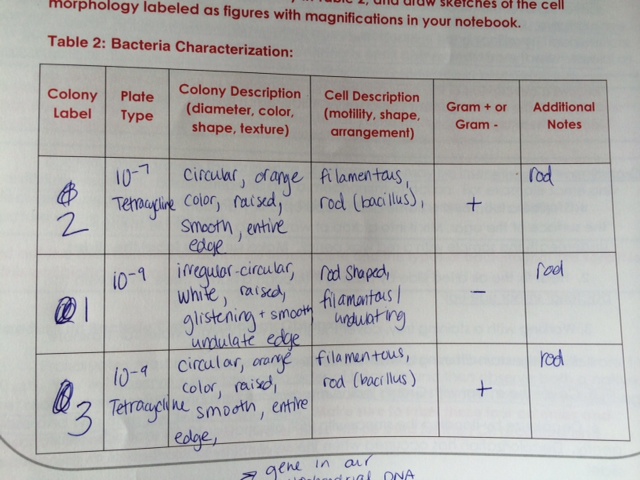 morphology labeled as figures with magnifications in your notebook.
Table 2: Bacteria Characterization:
Colony Label
Plate Type
Colony Description (diameter, color, shape, texture)
Cell Description (motility, shape, arrangement)
Gram + or Gram -
Additional Notes
2
10-7
Tetracycline
circular, orange
color, raised,
smooth, entire
edge
filamentous,
rod (bacillus),
+
rod
1
10-9
irregular-circular,
white, raised,
glistening + smooth
undulate edge
rod shaped,
filamentous/
undulating
-
rod
3
10-9
Tetracycline
circular, orange
color, raised,
smooth, entire
edge,
filamentous,
rod (bacillus)
+
rod
gene in our
DNA